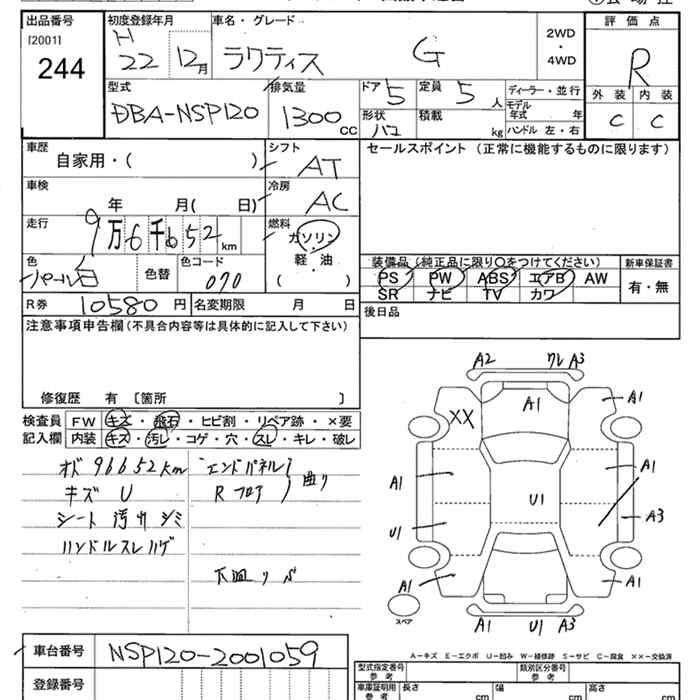 出品番号 初度登録年月 車名・グレード 評価点
[2001] H
244 22 12月 ラクティス G 2WD・4WD R
型式 排気量 ドア 5 定員 5人 ディーラー・並行 外装 内装
DBA-NSP120 1300cc 形状 ハコ 積載 kg モデル年式 年 C C
ハンドル 左・右
車歴 シフト セールスポイント (正常に機能するものに限ります)
自家用・( ) AT
車検 冷房
年 月( 日) AC
走行 燃料
9万6千652km ガソリン・軽油
色 色替 色コード ( )
パール白 070
装備品(純正品に限り○をつけてください) 新車保証書
PS PW ABS エアB AW 有・無
SR ナビ TV カワ
R券 10580円 名変期限 月 日 後日品
注意事項申告欄(不具合内容等は具体的に記入して下さい)
修復歴 有 〔箇所 〕
検査員 FW キズ・飛石・ヒビ割・リペア跡・×要
記入欄 内装 キズ・汚レ・コゲ・穴・スレ・キレ・破レ
オド 96652km エンドパネル
キズ U Rフロア 曲り
シート 汚レ シミ
ハンドルスレハゲ
下廻りサビ
A2 ワレ A3
A1 A1
XX
A1 U1 A1
U1 A3
A1 A1
スペア
A1 U1 A3
A-キズ E-エクボ U-凹み W-補修跡 S-サビ C-腐食 ××-交換済
車台番号 NSP120-2001059
登録番号
型式指定番号 参考 類別区分番号 参考
車庫証明用 参考 長さ cm 幅 cm 高さ cm